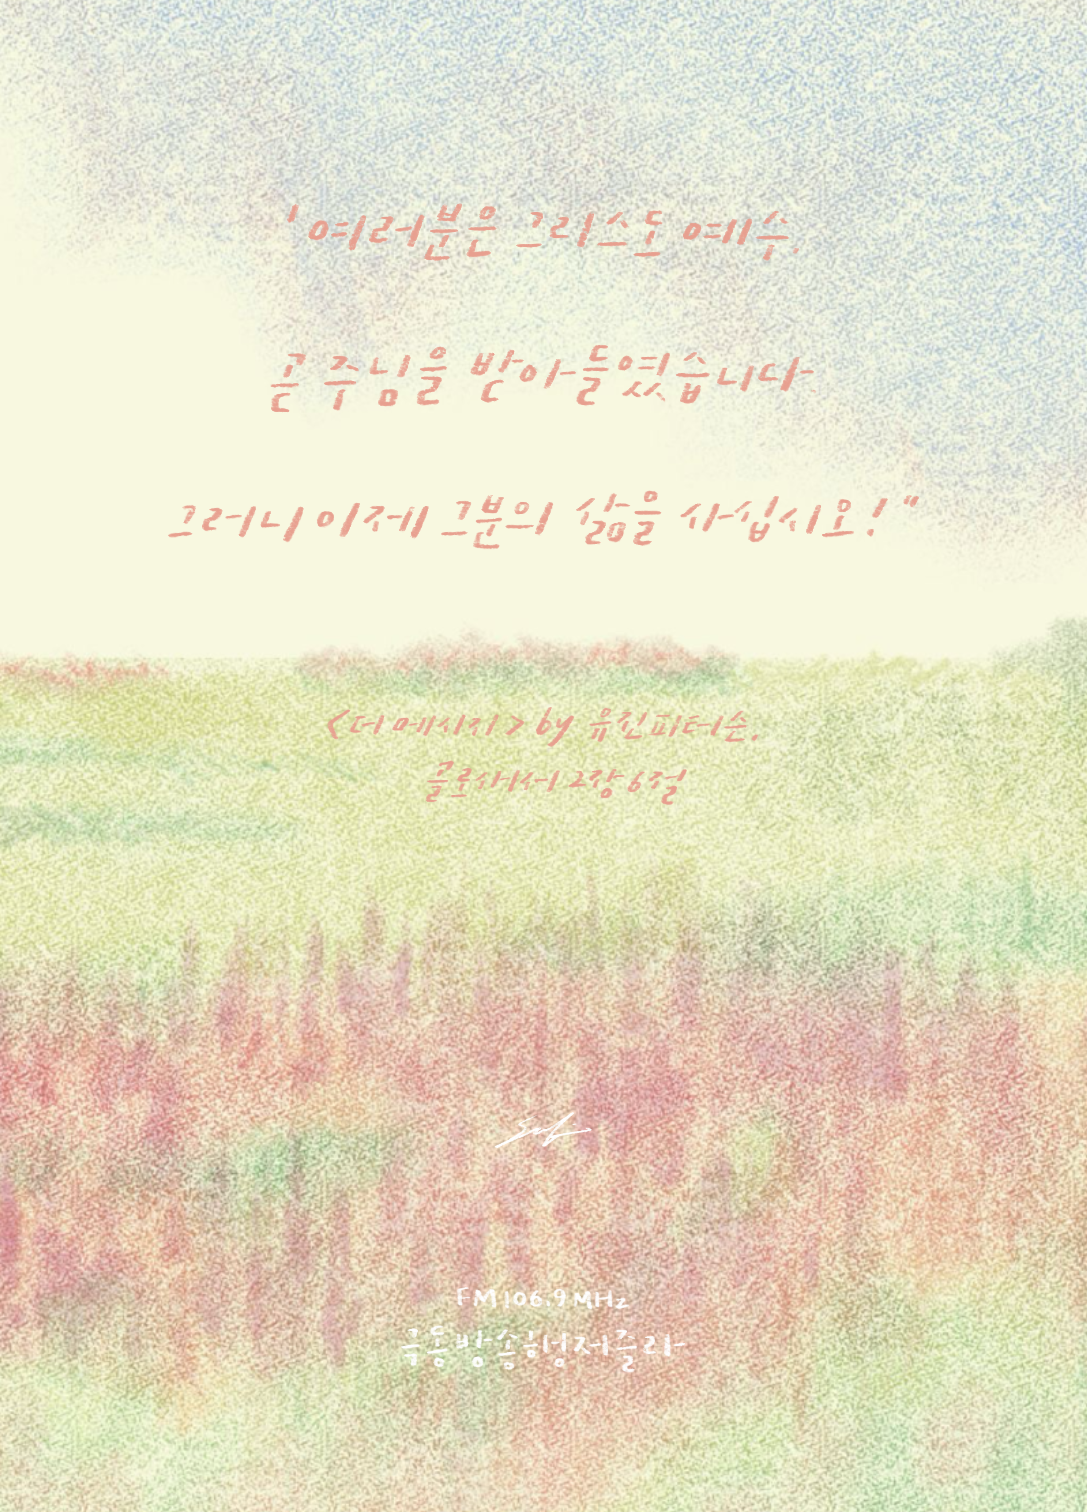 '여러분은 그리스도 예수.
곧 주님을 받아들였습니다
그러니 이제 그분의 삶을 사십시오!"
<더 메시지> by 유진피터슨.
골로새서 2장 6절
FM 106.9 MHz
극동방송형제줄라